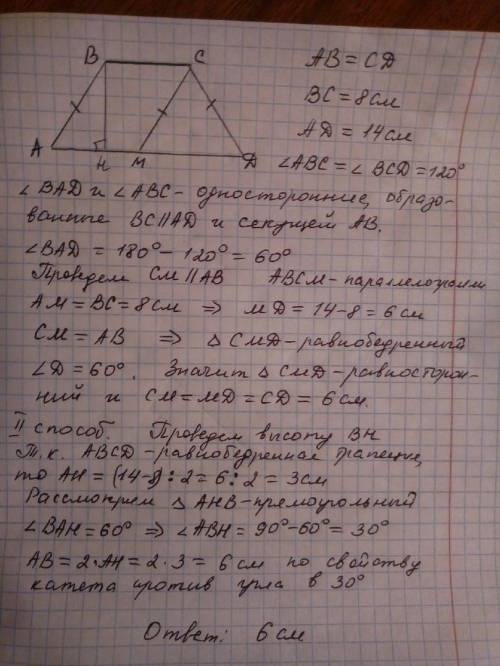 B C
A H M D
AB = CD
BC = 8см
AD = 14см
∠ABC = ∠BCD = 120°
∠BAD и ∠ABC - односторонние, образо-
ванные BC∥AD и секущей AB.
∠BAD = 180° - 120° = 60°
Проведем CM∥AB ABCM - параллелограмм
AM = BC = 8см ⇒ MD = 14-8 = 6см
CM = AB ⇒ △CMD - равнобедренный
∠D = 60°. Значит △CMD - равносторон-
ний и CM = MD = CD = 6см.
II способ. Проведем высоту BH
Т.к. ABCD - равнобедренная трапеция,
то AH = (14-8):2 = 6:2 = 3см
Рассмотрим △AHB - прямоугольный
∠BAH = 60° ⇒ ∠ABH = 90° - 60° = 30°
AB = 2·AH = 2·3 = 6см по свойству
катета против угла в 30°
Ответ: 6см